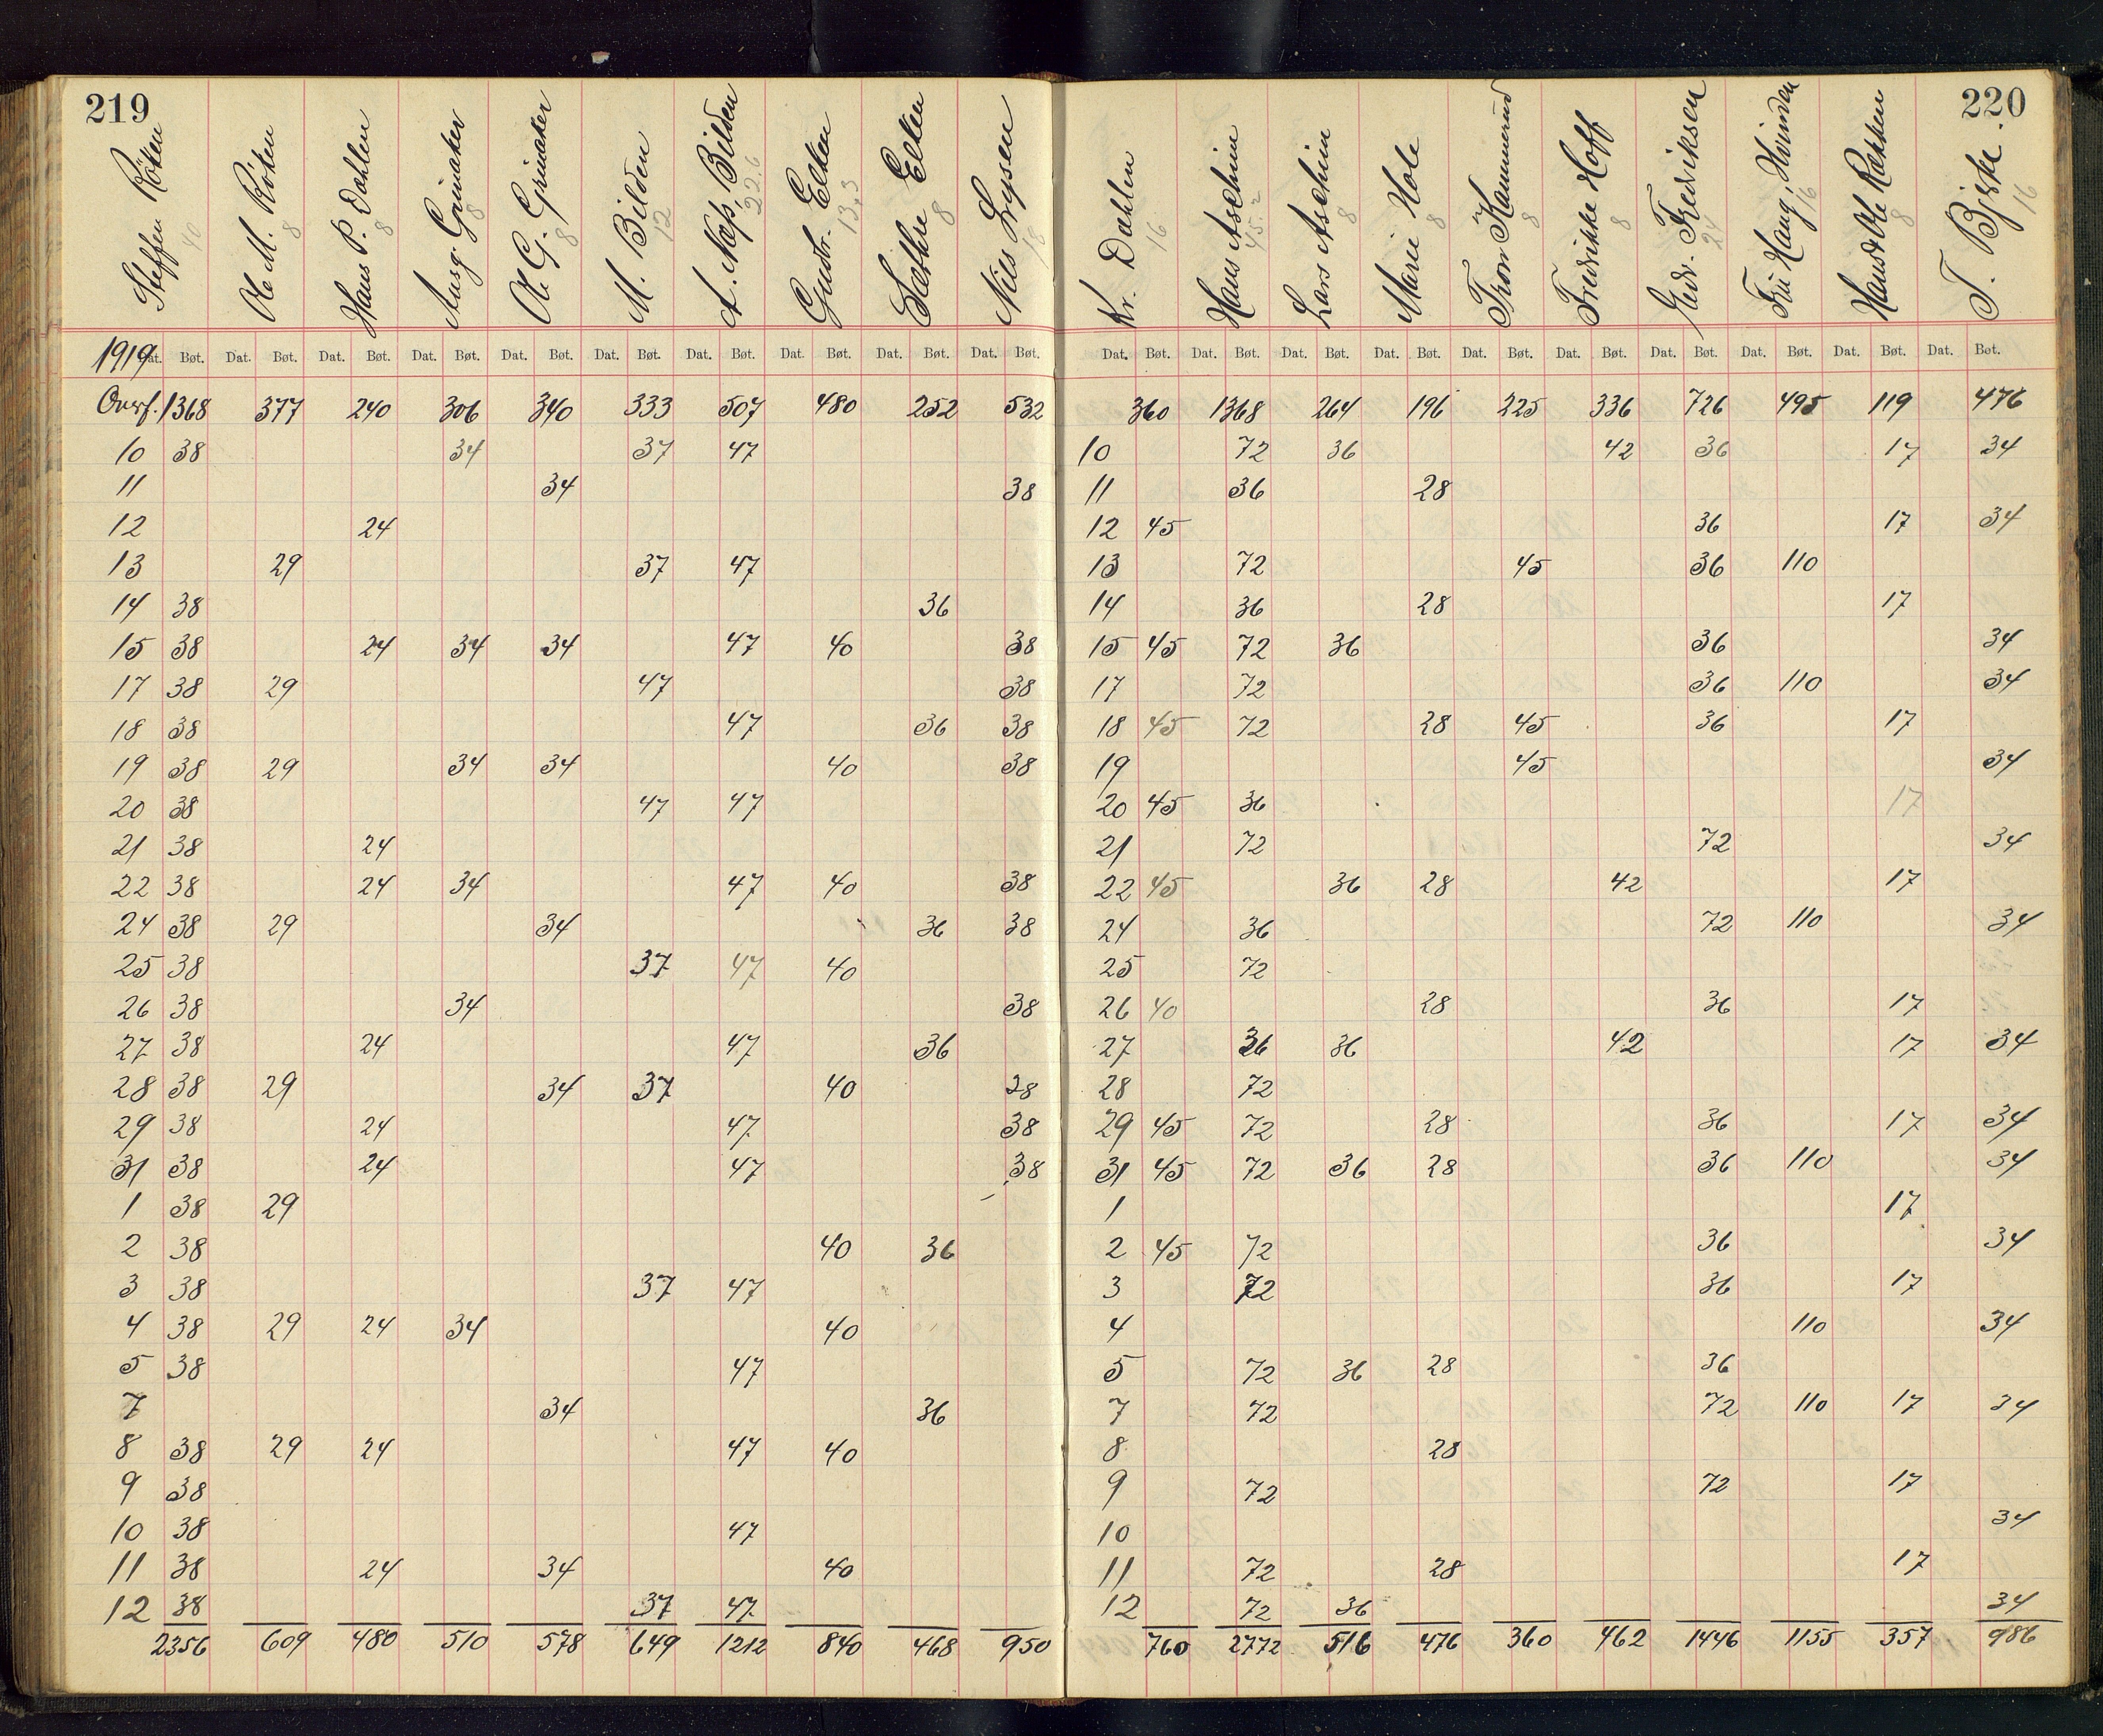 219
Steffen Röken 40
Ole M. Röken 8
Hans P. Dahlen 8
Aug. Grimaker 8
Ole G. Grimaker 8
M. Bilden 12
A. Næss, Bilden 22.6
Gustr. Elken 13,3
Sæthre Elken 8
Nils Lysen 18
1919 Dat. Bøt. Dat. Bøt. Dat. Bøt. Dat. Bøt. Dat. Bøt. Dat. Bøt. Dat. Bøt. Dat. Bøt. Dat. Bøt. Dat. Bøt.
Overf. 1368 377 240 306 340 333 507 480 252 532
10 38 34 37 47
11 34 38
12 24
13 29 37 47
14 38 36
15 38 24 34 34 47 40 38
17 38 29 47 38
18 38 47 36 38
19 38 29 34 34 40 38
20 38 47 47
21 38 24
22 38 24 34 47 40 38
24 38 29 34 36 38
25 38 37 47 40
26 38 34 38
27 38 24 47 36
28 38 29 34 37 40 38
29 38 24 47 38
31 38 24 47 38
1 38 29
2 38 40 36
3 38 37 47
4 38 29 24 34 40
5 38 47
7 34 36
8 38 29 24 47 40
9 38
10 38 47
11 38 24 34 40
12 38 37 47
2356 609 480 510 578 649 1212 840 468 950
220
Kr. Dahlen 16
Hans Aschim 45.2
Lars Aschim 8
Marie Hole 8
Tron Kammerud 8
Fredrikke Hoff 8
Gudr. Fredriksen 24
Fru Haug, Hvinden 16
Hans & Ole Rækken 8
T. Bjerke. 16
Dat. Bøt. Dat. Bøt. Dat. Bøt. Dat. Bøt. Dat. Bøt. Dat. Bøt. Dat. Bøt. Dat. Bøt. Dat. Bøt. Dat. Bøt.
360 1368 264 196 225 336 726 495 119 476
10 72 36 42 36 17 34
11 36 28
12 45 36 17 34
13 72 45 36 110
14 36 28 17
15 45 72 36 36 34
17 72 36 110 34
18 45 72 28 45 36 17
19 45 34
20 45 36 17
21 72 72 34
22 45 36 28 42 17
24 36 72 110 34
25 72
26 40 28 36 17
27 36 36 42 17 34
28 72
29 45 72 28 36 17 34
31 45 72 36 28 36 110 34
1 17
2 45 72 36 34
3 72 36 17
4 110 34
5 72 36 28 36
7 72 72 110 17 34
8 28
9 72 72 17
10 34
11 72 28 17
12 72 36 34
760 2772 516 476 360 462 1446 1155 357 986